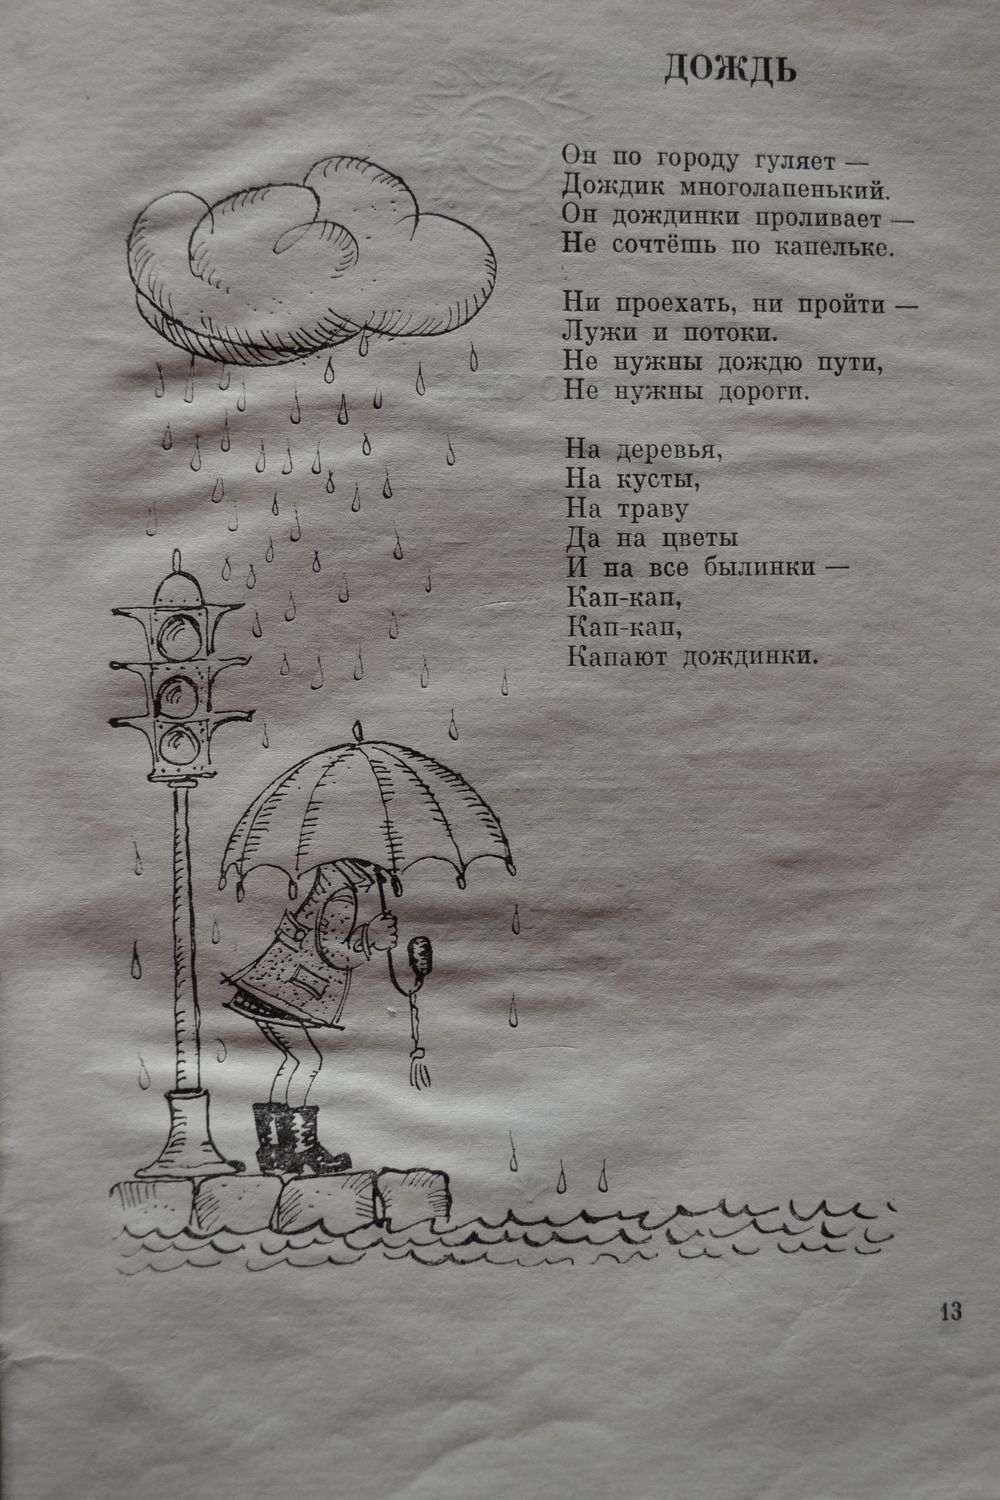 ДОЖДЬ
Он по городу гуляет —
Дождик многолапенький.
Он дождинки проливает —
Не сочтёшь по капельке.
Ни проехать, ни пройти —
Лужи и потоки.
Не нужны дождю пути,
Не нужны дороги.
На деревья,
На кусты,
На траву
Да на цветы
И на все былинки —
Кап-кап,
Кап-кап,
Капают дождинки.
13